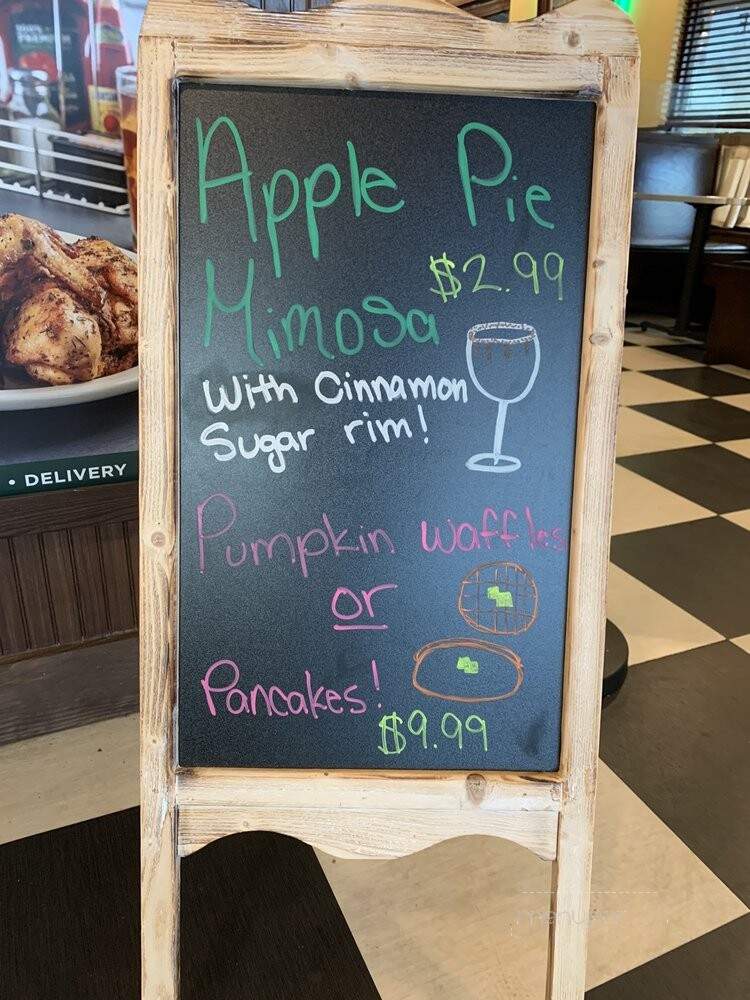 Apple Pie
$2.99
Mimosa
With Cinnamon
Sugar rim!
Pumpkin waffles
or
Pancakes!
$9.99
• DELIVERY